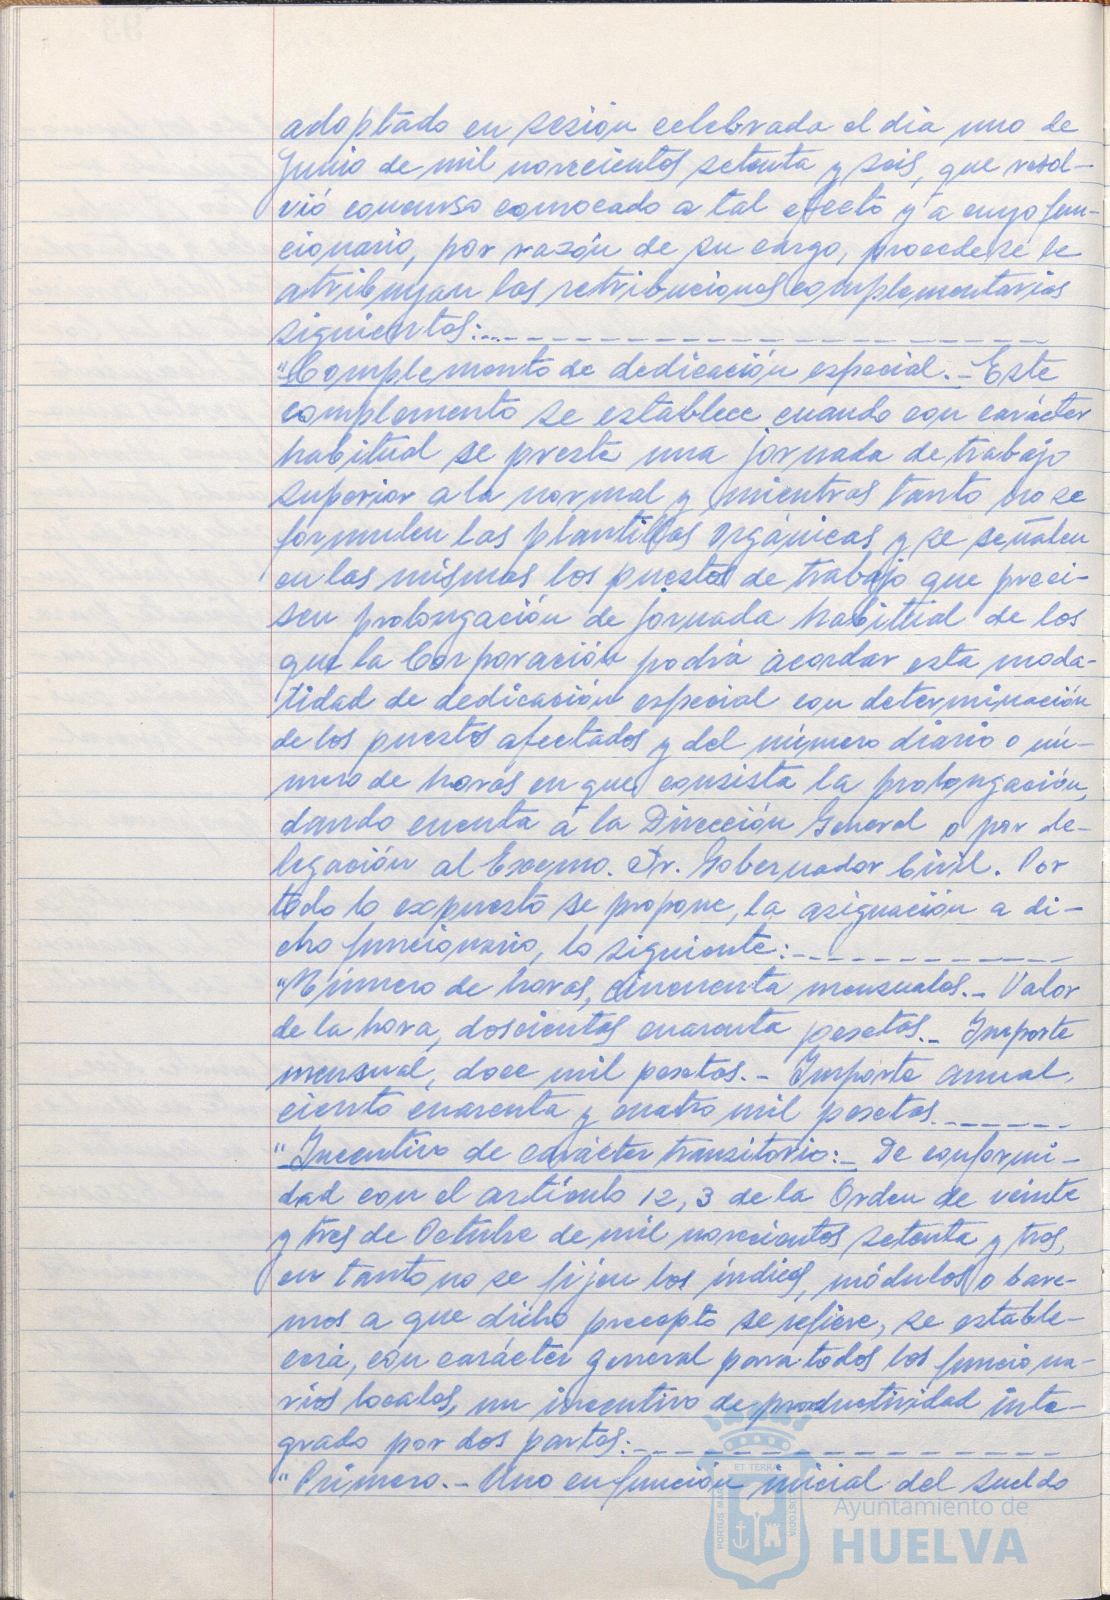 adoptado en sesión celebrada el dia uno de
Junio de mil novecientos setenta y seis, que resol-
vió concurso convocado a tal efecto y a cuyo fun-
cionario, por razón de su cargo, procede se le
atribuyan las retribuciones complementarias
siguientes:
"Complemento de dedicación especial.- Este
complemento se establece cuando con carácter
habitual se preste una jornada de trabajo
superior a la normal y mientras tanto no se
formulen las plantillas orgánicas y se señalen
en las mismas los puestos de trabajo que preci-
sen prolongación de jornada habitual de los
que la Corporación podrá acordar esta moda-
lidad de dedicación especial con determinación
de los puestos afectados y del número diario o nú-
mero de horas en que consista la prolongación,
dando cuenta a la Dirección General o por de-
legación al Excmo. Sr. Gobernador Civil. Por
todo lo expuesto se propone, la asignación a di-
cho funcionario, lo siguiente:
"Número de horas, cincuenta mensuales.- Valor
de la hora, doscientas cuarenta pesetas.- Importe
mensual, doce mil pesetas.- Importe anual,
ciento cuarenta y cuatro mil pesetas
"Incentivo de carácter transitorio:- De conformi-
dad con el artículo 12,3 de la Orden de veinte
y tres de Octubre de mil novecientos setenta y tres,
en tanto no se fijen los índices, módulos o bare-
mos a que dicho precepto se refiere, se estable-
cerá, con carácter general para todos los funciona-
rios locales, un incentivo de productividad inte-
grado por dos partes:
"Primero.- Uno en función inicial del sueldo
Ayuntamiento de
HUELVA